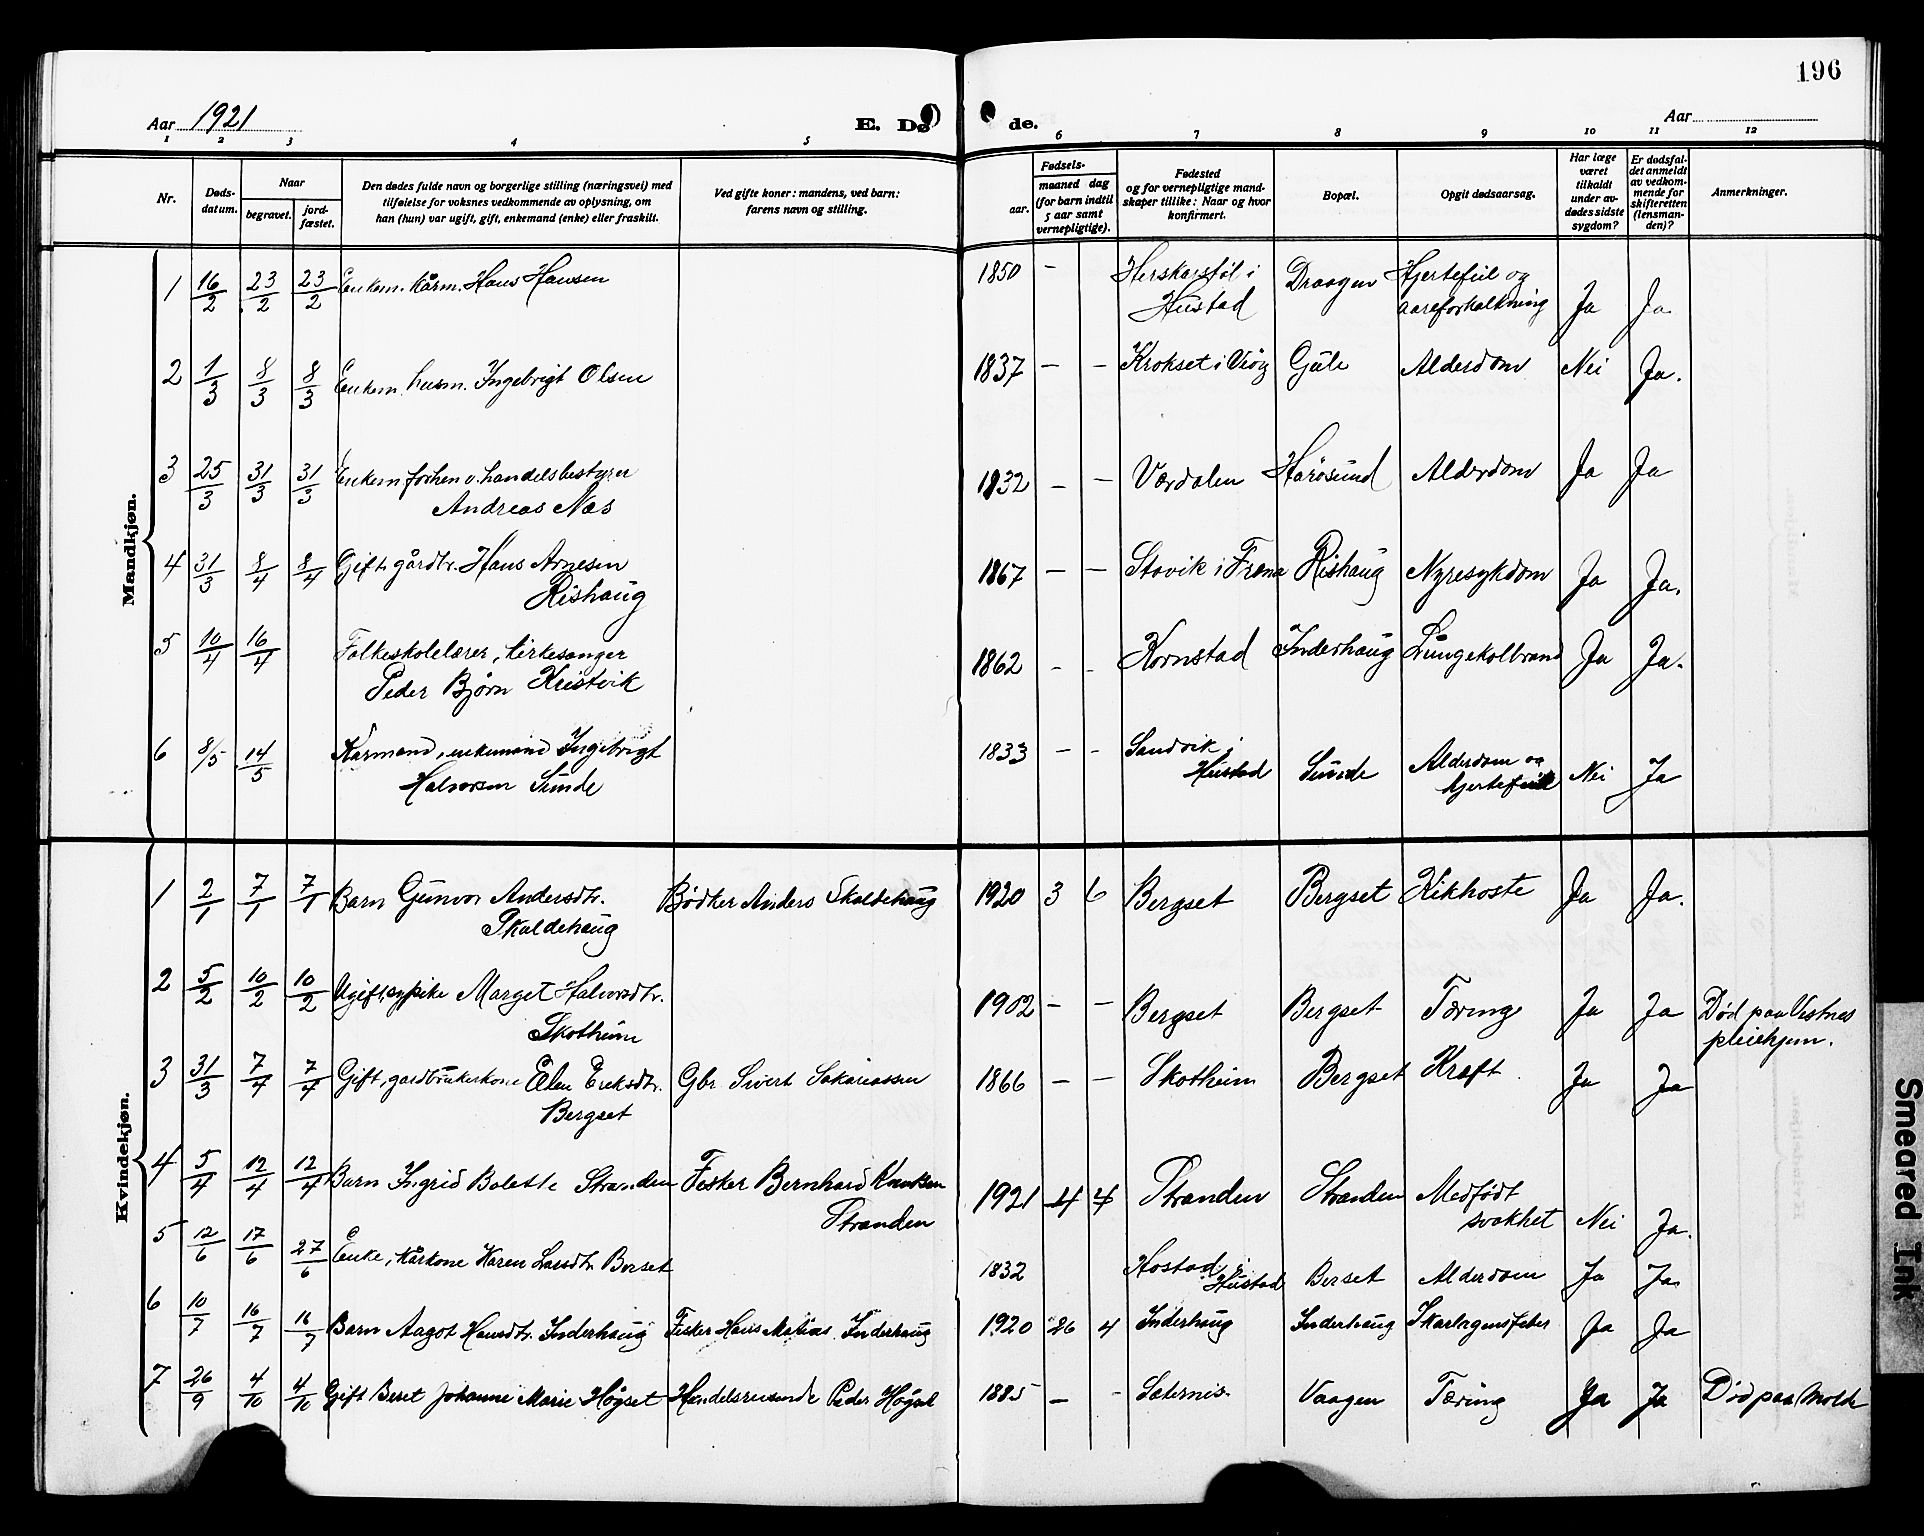 196
Aar 1921
E. Dø
de.
Aar
1 2 3 4 5 6 7 8 9 10 11 12
Nr.
Døds-
datum.
Naar
begravet.
jord-
fæstet.
Den dødes fulde navn og borgerlige stilling (næringsvei) med
tilføielse for voksnes vedkommende av oplysning, om
han (hun) var ugift, gift, enkemand (enke) eller fraskilt.
Ved gifte koner: mandens, ved barn:
farens navn og stilling.
Fødsels-
aar.
maaned dag
(for barn indtil
5 aar samt
vernepligtige).
Fødested
og for vernepligtige mand-
skaper tillike: Naar og hvor
konfirmert.
Bopæl.
Opgit dødsaarsag.
Har læge
været
tilkaldt
under av-
dødes sidste
sygdom?
Er dødsfal-
det anmeldt
av vedkom-
mende for
skifteretten
(lensman-
den)?
Anmerkninger.
Mandkjøn.
1 16/2 23/2 23/2 Enkem. kårm. Hans Hansen 1850 - Herskarstøl i Draagen Hjertefeil og
Hustad aareforkalkning Ja Ja
2 1/3 8/3 8/3 Enkem. husm. Ingebrigt Olsen 1837 - - Krokset i Vevg Gule Alderdom Nei Ja.
3 25/3 31/3 31/3 Enkem forhen v. handelsbestyrer 1832 - - Værdalen Harøsund Alderdom Ja Ja
Andreas Næs
4 31/3 8/4 8/4 Gift gårdbr. Hans Arnesen 1867 - - Stavik i Fræna Rishaug Nyresykdom Ja Ja.
Rishaug
5 10/4 16/4 Folkeskolelærer, kirkesanger 1862 - - Kornstad Inderhaug Lungekolbrand Ja Ja.
Peder Bjørn Kristvik
6 8/5 14/5 Karmand, enkemand Ingebrigt 1833 - - Sandvik i Sunde Alderdom og Nei Ja
Halvorsen Sunde Hustad hjertefeil
Kvindekjøn.
1 2/1 7/1 7/1 Barn Gunvor Andersdtr. Bødker Anders Skaldehaug 1920 3 6 Bergset Bergset Kikhoste Ja Ja.
Skaldehaug
2 5/2 10/2 10/2 Ugift, sypike Marget Halvorsdtr. 1902 - - Bergset Bergset Tæring Ja Ja Død paa Vestnes
Skotheim pleiehjem.
3 31/3 7/4 7/4 Gift, gardbrukerkone Elen Eriksdtr. Gbr. Sivert Sakariassen 1866 - - Skotheim Bergset Kræft Ja Ja
Bergset
4 5/4 12/4 12/4 Barn Ingrid Bolette Stranden Fisker Bernhard Knutsen 1921 4 4 Stranden Stranden Medfødt
Stranden svakhet Nei Ja.
5 12/6 17/6 27/6 Enke, kårkone Karen Larsdtr. Berset 1832 Hostad i Berset Alderdom Ja Ja
Hustad
6 10/7 16/7 16/7 Barn Aagot Hansdtr. Inderhaug Fisker Hans Matias Inderhaug 1920 26 4 Inderhaug Inderhaug Skarlagensfeber Ja Ja
7 26/9 4/10 4/10 Gift Beret Johanne Marie Høgset Handelsreisende Peder Høgset 1885 - - Vaagen Tæring Ja Ja Død paa Molde
Smeared Ink